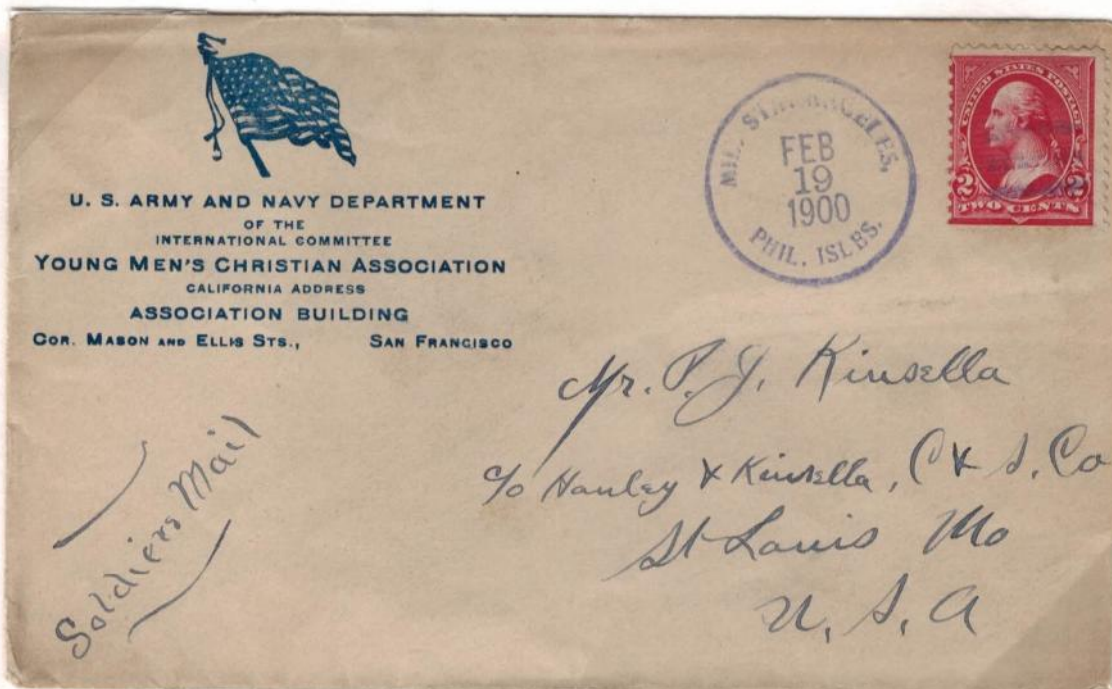 U. S. ARMY AND NAVY DEPARTMENT
OF THE
INTERNATIONAL COMMITTEE
YOUNG MEN'S CHRISTIAN ASSOCIATION
CALIFORNIA ADDRESS
ASSOCIATION BUILDING
COR. MASON AND ELLIS STS., SAN FRANCISCO
MIL. STA. ANGELES,
FEB
19
1900
PHIL. ISLES.
UNITED STATES POSTAGE
2 2
TWO CENTS
Mr. P. J. Kinsella
c/o Hanley & Kinsella, C & S. Co
St Louis Mo
U. S. A
Soldiers Mail